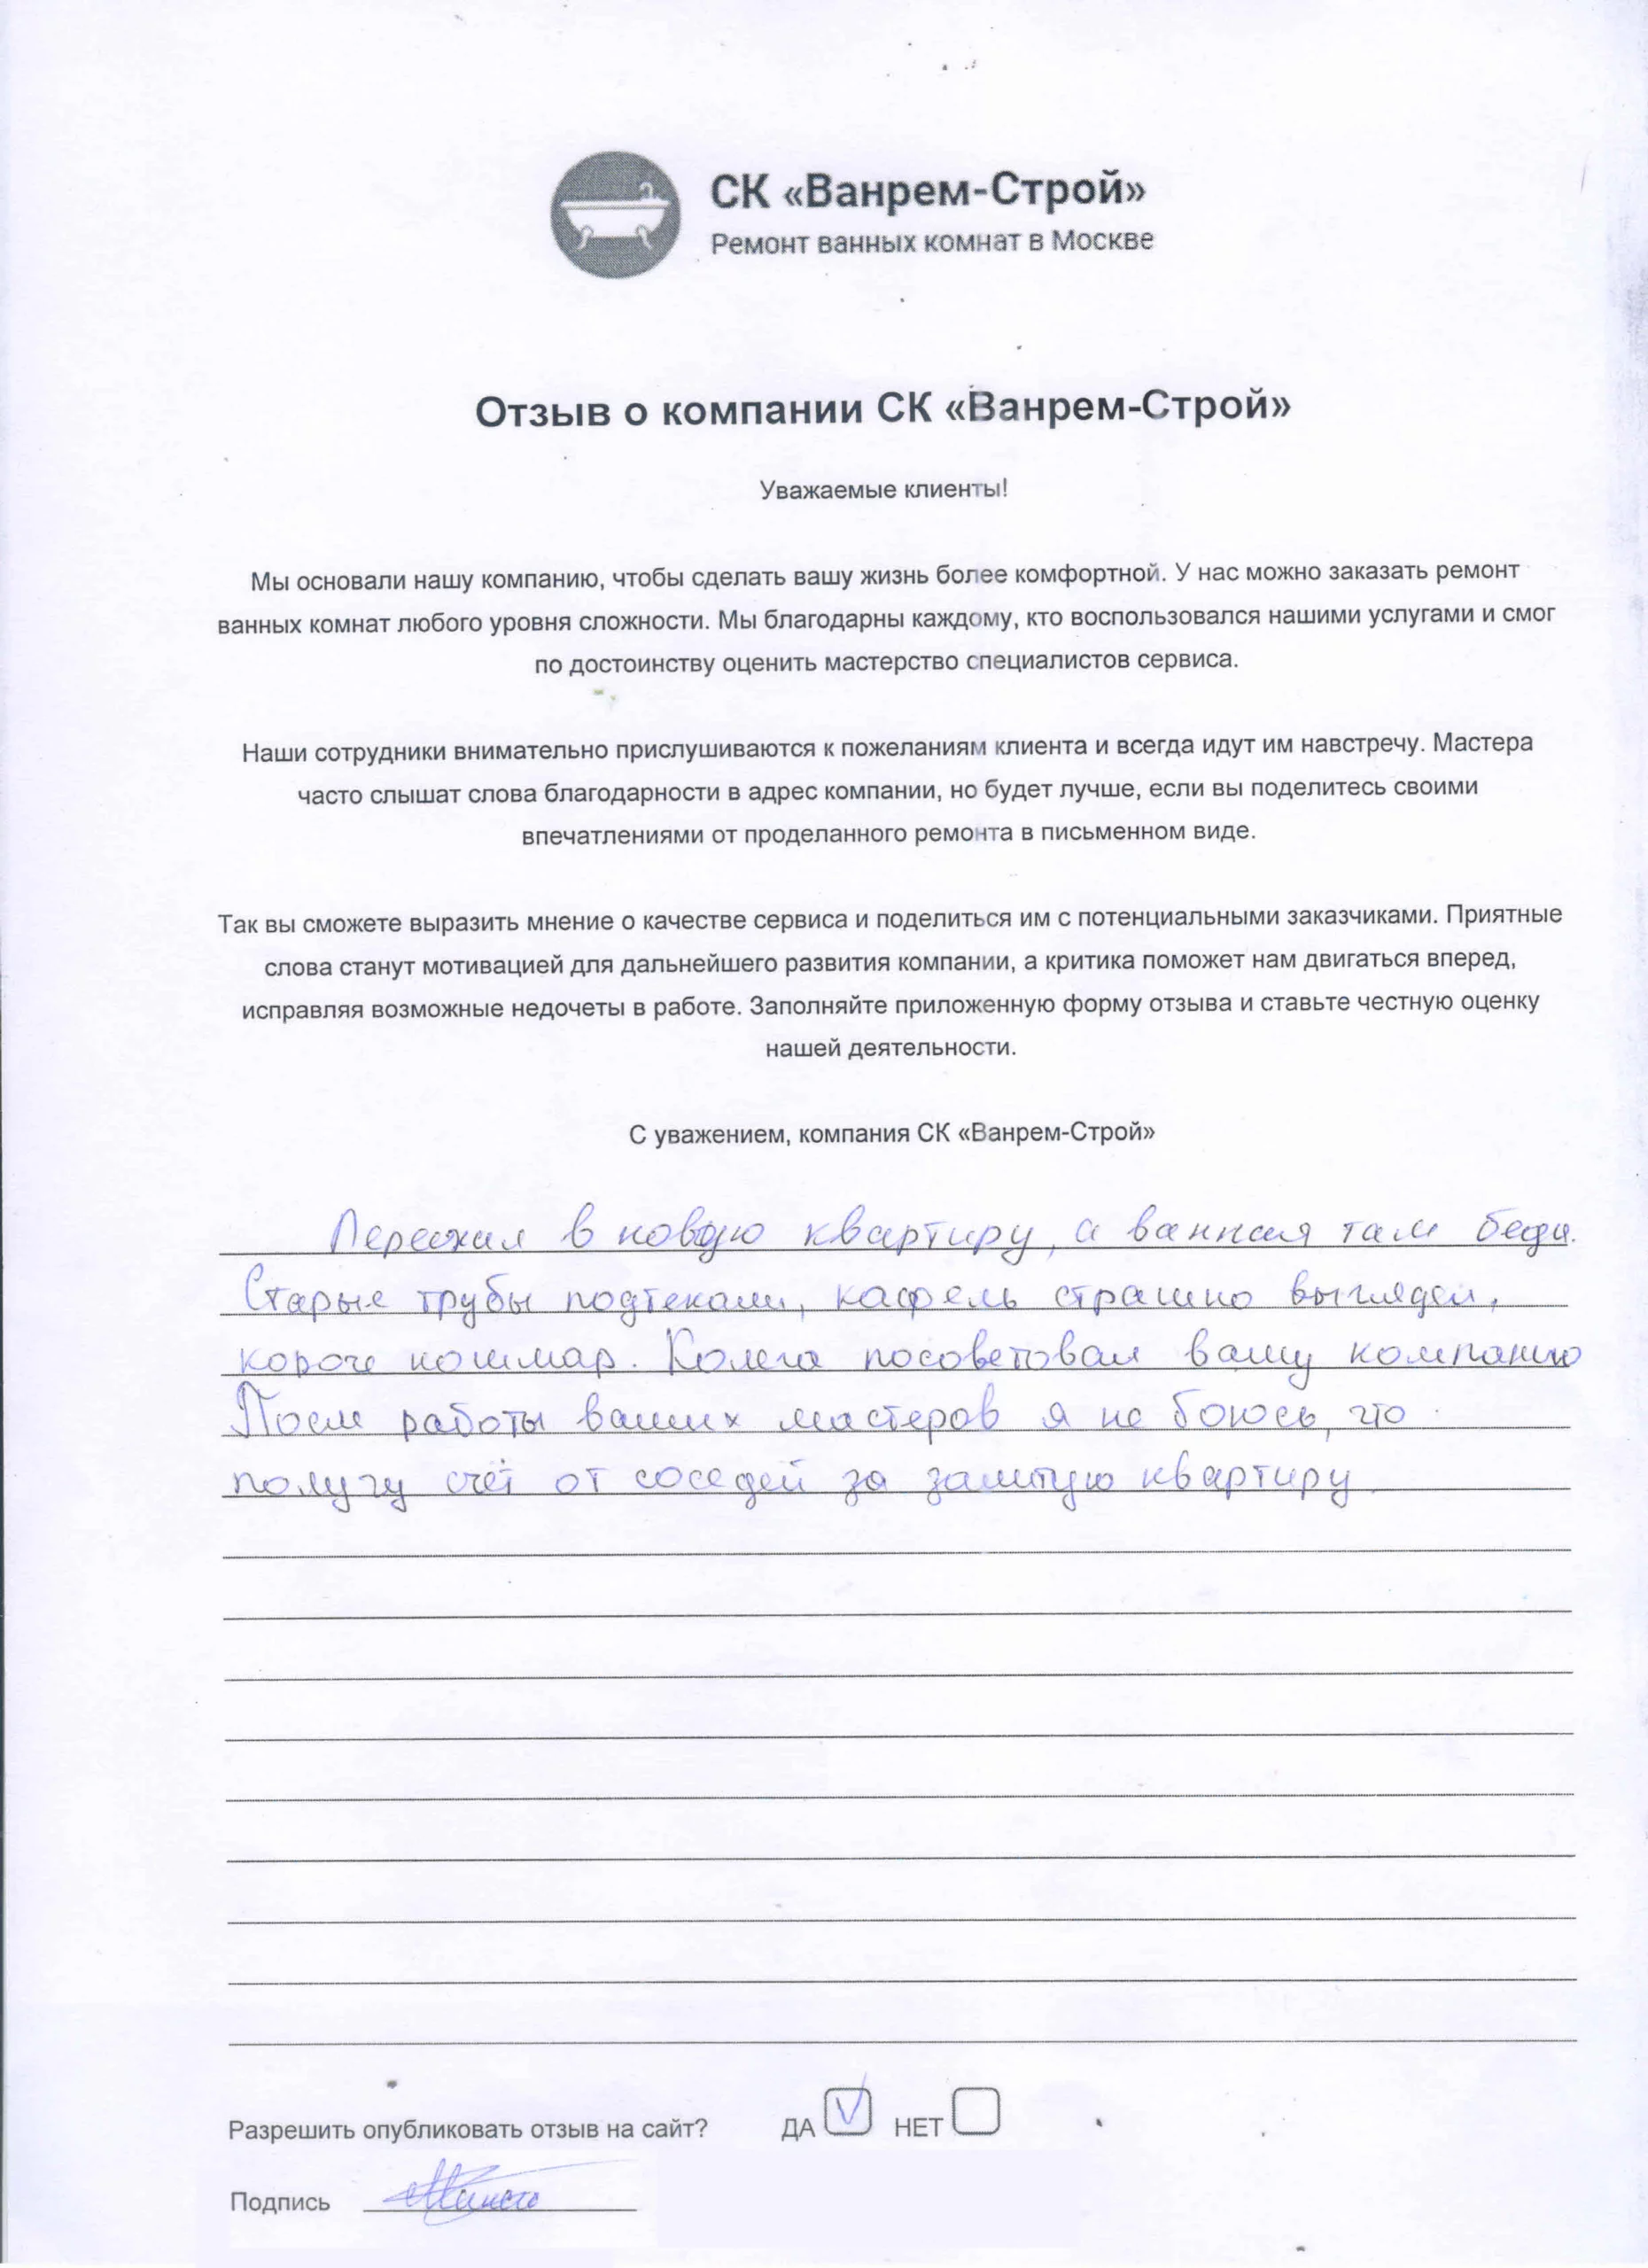 СК «Ванрем-Строй»
Ремонт ванных комнат в Москве
Отзыв о компании СК «Ванрем-Строй»
Уважаемые клиенты!
Мы основали нашу компанию, чтобы сделать вашу жизнь более комфортной. У нас можно заказать ремонт
ванных комнат любого уровня сложности. Мы благодарны каждому, кто воспользовался нашими услугами и смог
по достоинству оценить мастерство специалистов сервиса.
Наши сотрудники внимательно прислушиваются к пожеланиям клиента и всегда идут им навстречу. Мастера
часто слышат слова благодарности в адрес компании, но будет лучше, если вы поделитесь своими
впечатлениями от проделанного ремонта в письменном виде.
Так вы сможете выразить мнение о качестве сервиса и поделиться им с потенциальными заказчиками. Приятные
слова станут мотивацией для дальнейшего развития компании, а критика поможет нам двигаться вперед,
исправляя возможные недочеты в работе. Заполняйте приложенную форму отзыва и ставьте честную оценку
нашей деятельности.
С уважением, компания СК «Ванрем-Строй»
Переехал в новую квартиру, а ванная там беда.
Старые трубы подтекали, кафель страшно выглядел,
короче кошмар. Колега посоветовал вашу компанию
После работы ваших мастеров я не боюсь, что
получу счёт от соседей за залитую квартиру.
Разрешить опубликовать отзыв на сайт? ДА НЕТ
Подпись